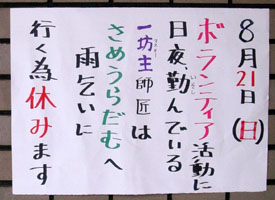 8月21日(日)
ボランティア活動に
日夜、勤んでいる
一坊主師匠は
さめうらだむへ
雨乞いに
行く為休みます